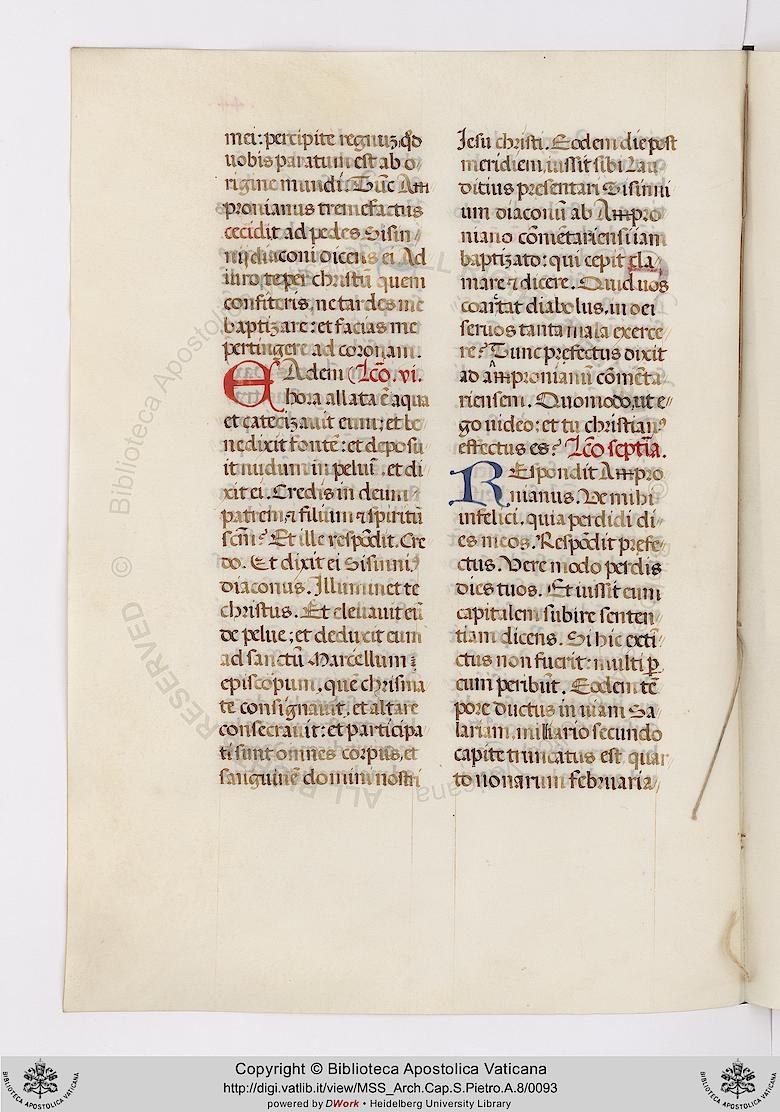 mei: percipite regnuʒ, qđ
vobis paratum est ab o-
rigine mundi. Tūc Am
pronianus tremefactus
cecidit ad pedes Sisin-
nij diaconi dicens ei Ad
iuro te per christū quem
confiteris, ne tardes me
baptizare: et facias me
pertingere ad coronam.
EAdem Lc̄o. vi.
hora allata ē aqua
et catecizauit eum: et be
nedixit fontē: et deposu
it nudum in peluī. et di
xit ei. Credis in deum
patrem, ⁊ filium ⁊ spiritū
scm̄? Et ille respōdit. Cre
do. Et dixit ei Sisinni9
diaconus. Illuminet te
christus. Et eleuauit eū
de pelue; et deduxit eum
ad sanctū Marcellum
episcopum, quē chrisma
te consignauit, et altare
consecrauit: et participa
ti sunt omnes corpus, et
sanguinē domini nostri
Jesu christi. Eodem die post
meridiem, iussit sibi Lau
ditius presentari Sisinni
um diaconū ab Ampro
niano cōmētariensi iam
baptizato: qui cepit cla
mare ⁊ dicere. Quid uos
coartat diabolus, in dei
seruos tanta mala exerce
re? Tunc prefectus dixit
ad ampronianū cōmēta
riensem. Quomodo, ut e-
go uideo: et tu christian9
effectus es? Lc̄o septīa.
REspondit Ampro
nianus. Ve mihi
infelici, quia perdidi di-
es meos. Respōdit prefe-
ctus. Vere modo perdis
dies tuos. Et iussit eum
capitalem subire senten-
tiam dicens. Si hic exti-
ctus non fuerit: multi ꝑ
eum peribūt. Eodem tē
pore ductus in uiam Sa
lariam, miliario secundo
capite truncatus est quar
to nonarum februaria-
Copyright © Biblioteca Apostolica Vaticana
http://digi.vatlib.it/view/MSS_Arch.Cap.S.Pietro.A.8/0093
powered by DWork • Heidelberg University Library
BIBLIOTECA APOSTOLICA VATICANA
BIBLIOTECA APOSTOLICA VATICANA